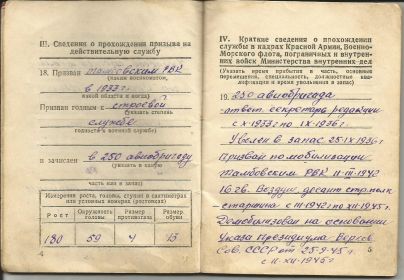 III. Сведения о прохождении призыва на
действительную службу
18. Призван Тамбовским РВК
(каким военкоматом,
в 1933 г.
какой области и когда)
Призван годным к строевой
(указать степень
службе
годности к военной службе)
и зачислен в 250 авиабригаду
(указать в какую
часть или в запас)
Измерения роста, головы, ступни в сантиметрах
или условных номерах (ростовка)
Рост Окружность головы Размер противогаза Размер обуви
180 59 4 15
4
IV. Краткие сведения о прохождении
службы в кадрах Красной Армии, Военно-
Морского флота, пограничных и внутрен-
них войск Министерства внутренних дел
(Указать время прибытия в часть, основные
перемещения, специальность, должностные ква-
лификации и время увольнения в запас)
19. 250 авиабригада
ответ. секретарь редакции
с X 1933 г по IX 1936 г.
Уволен в запас 25 IX 1936 г
Призван по мобилизации
Тамбовским РВК III-1942
16 гв. Воздуш десант стр. полк -
старшина с III-1942 г по XII-1945 г.
Демобилизован на основании
Указа Президиума Верхов
Сов. СССР от 25-9-45 г.
5